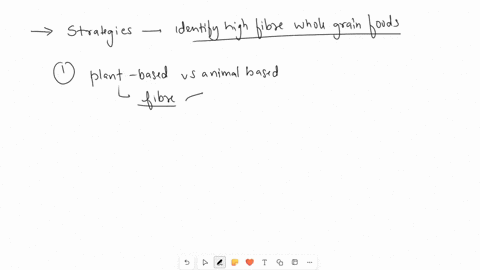 → Strategies — identify high fibre whole grain foods
① plant-based vs animal based
↳ fibre